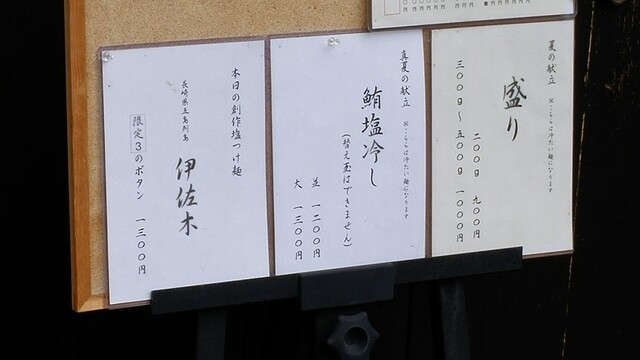 夏の献立 ※こちらは冷たい麺になります
盛り
二〇〇g 九〇〇円
三〇〇g〜五〇〇g 一〇〇〇円
真夏の献立 ※こちらは冷たい麺になります
鮪塩冷し
(替え玉はできません)
並 一二〇〇円
大 一三〇〇円
本日の創作塩つけ麺
長崎県五島列島
伊佐木
限定3のボタン 一三〇〇円